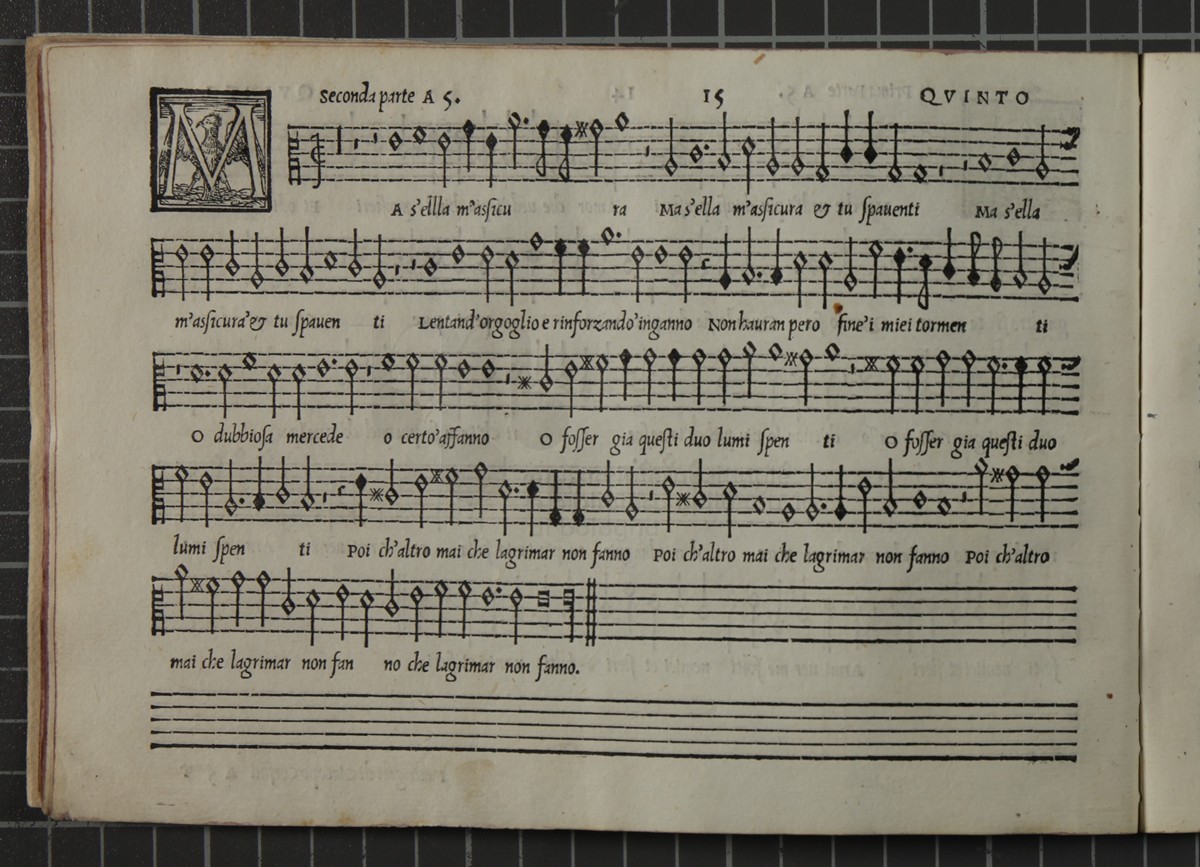 Seconda parte A 5. 15 QVINTO
MA s'ellla m'assicu ra Ma s'ella m'assicura & tu spauenti Ma s'ella
m'assicura'& tu spauen ti Lentand'orgoglio e rinforzando'inganno Non hauran pero fine'i miei tormen ti
O dubbiosa mercede o certo'affanno O fosser gia questi duo lumi spen ti O fosser gia questi duo
lumi spen ti Poi ch'altro mai che lagrimar non fanno Poi ch'altro mai che lagrimar non fanno Poi ch'altro
mai che lagrimar non fan no che lagrimar non fanno.